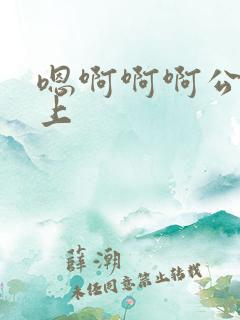 嗯啊啊啊公
上
薜潮
未经同意禁止转载